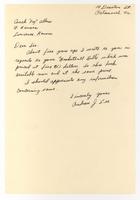 Coach "Mc" Allen
U. Kansas
Lawrence, Kansas
Dear Sir:
About five years ago I wrote to you in
regards to your Basketball Bible which was
priced at five ($5) dollars. Is this book
available now and at the same price.
I should appreciate any information
concerning same.
Sincerely yours
Andrew J.